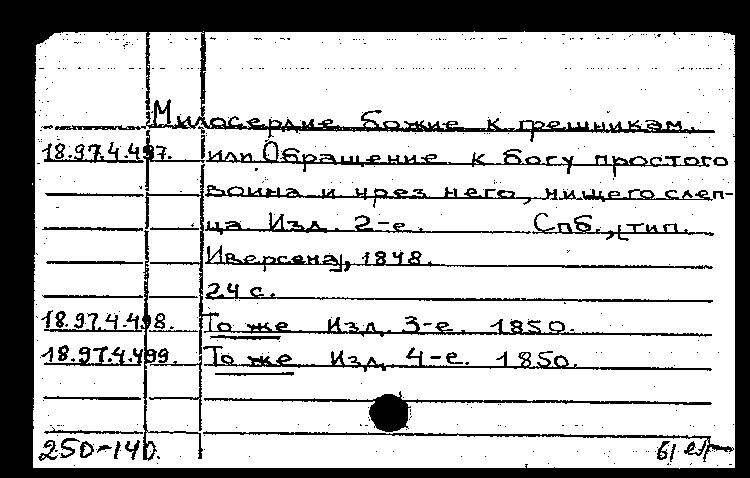 Милосердие божие к грешникам.
18.97.4.497. или Обращение к богу простого
воина и чрез него, нищего слеп-
ца Изд. 2-е. Спб., [тип.
Иверсена], 1848.
24 с.
18.97.4.498. То же Изд. 3-е. 1850.
18.97.4.499. То же Изд. 4-е. 1850.
250-140. 61